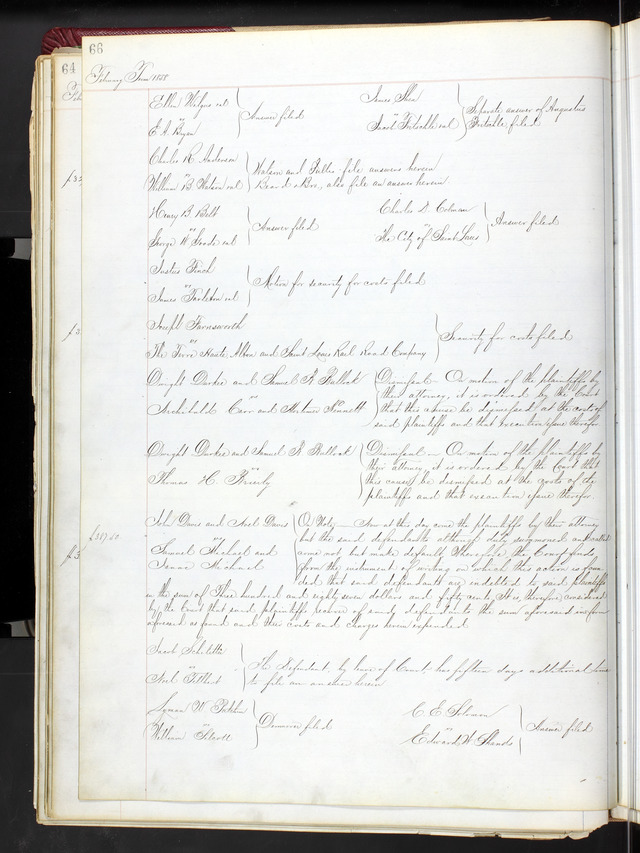 66
64
February Term 1858
Ellen Wilgus et al
vs
E. A. Ryan
Answer filed
James Shea
vs
Jacob Fritschle et al
Separate answer of Augustus
Fritschle filed
Charles R. Anderson
vs
William B Watson et al
Watson and file answers herein
also file an answer herein
Henry B Belt
vs
George W et al
Answer filed
Charles D. Colman
vs
The City of Saint Louis
Answer filed
Justus Finch
vs
James Tarleton et al
Motion for security for costs filed
Joseph Farnsworth
vs
The Terre Haute, Alton and Saint Louis Rail Road Company
Security for costs filed
Dwight Durkee and Samuel R Bullock
vs
Archibald Carr and Bennett
Dismissal — On motion of the plaintiffs by
their attorney, it is ordered by the Court
that this cause be dismissed at the cost of
said plaintiffs and that execution issue therefor
Dwight Durkee and Samuel R Bullock
vs
Thomas H.
Dismissal — On motion of the plaintiffs by
their attorney it is ordered by the Court that
this cause be dismissed at the costs of the
plaintiffs and that execution issue therefor.
John Davis and Davis
vs
Samuel Michael and
Isaac Michael
$387.50
On Note — Now at this day come the plaintiffs by their attorney
but the said defendants although duly summoned and called
came not, but make default, Wherefore the Court finds
from the instrument of writing on which this action is foun
ded that said defendants are indebted to said plaintiffs
in the sum of Three hundred and eighty seven dollars and fifty cents. It is, therefore, considered
by the Court that said plaintiffs recover of said defendants the sum aforesaid in form
aforesaid as found and their costs and charges herein expended
Jacob
vs
The defendant, by leave of Court, has fifteen days additional time
to file an answer herein
Lyman W.
vs
William
Demurrer filed
C. E. Salomon
vs
Edward W Shands
Answer filed